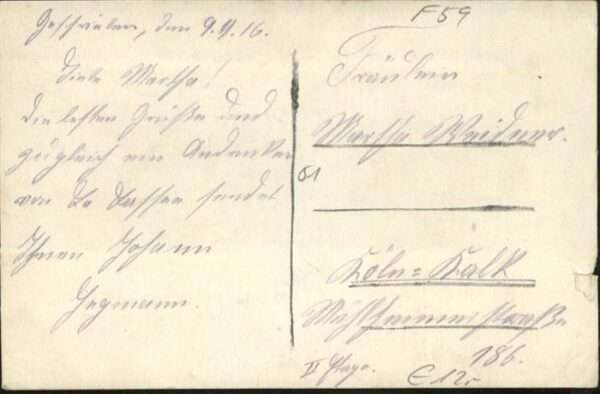 Geschrieben, den 9.9.16.
Liebe Martha!
Die besten Grüße und
zugleich ein Andenken
von La Bassee sendet
Ihnen Johann
Hegmann.
F59
Fräulein
Martha Weidner.
61
Köln=Kalk
Mülheimerstraße
186.
II Etage.
E 12,-